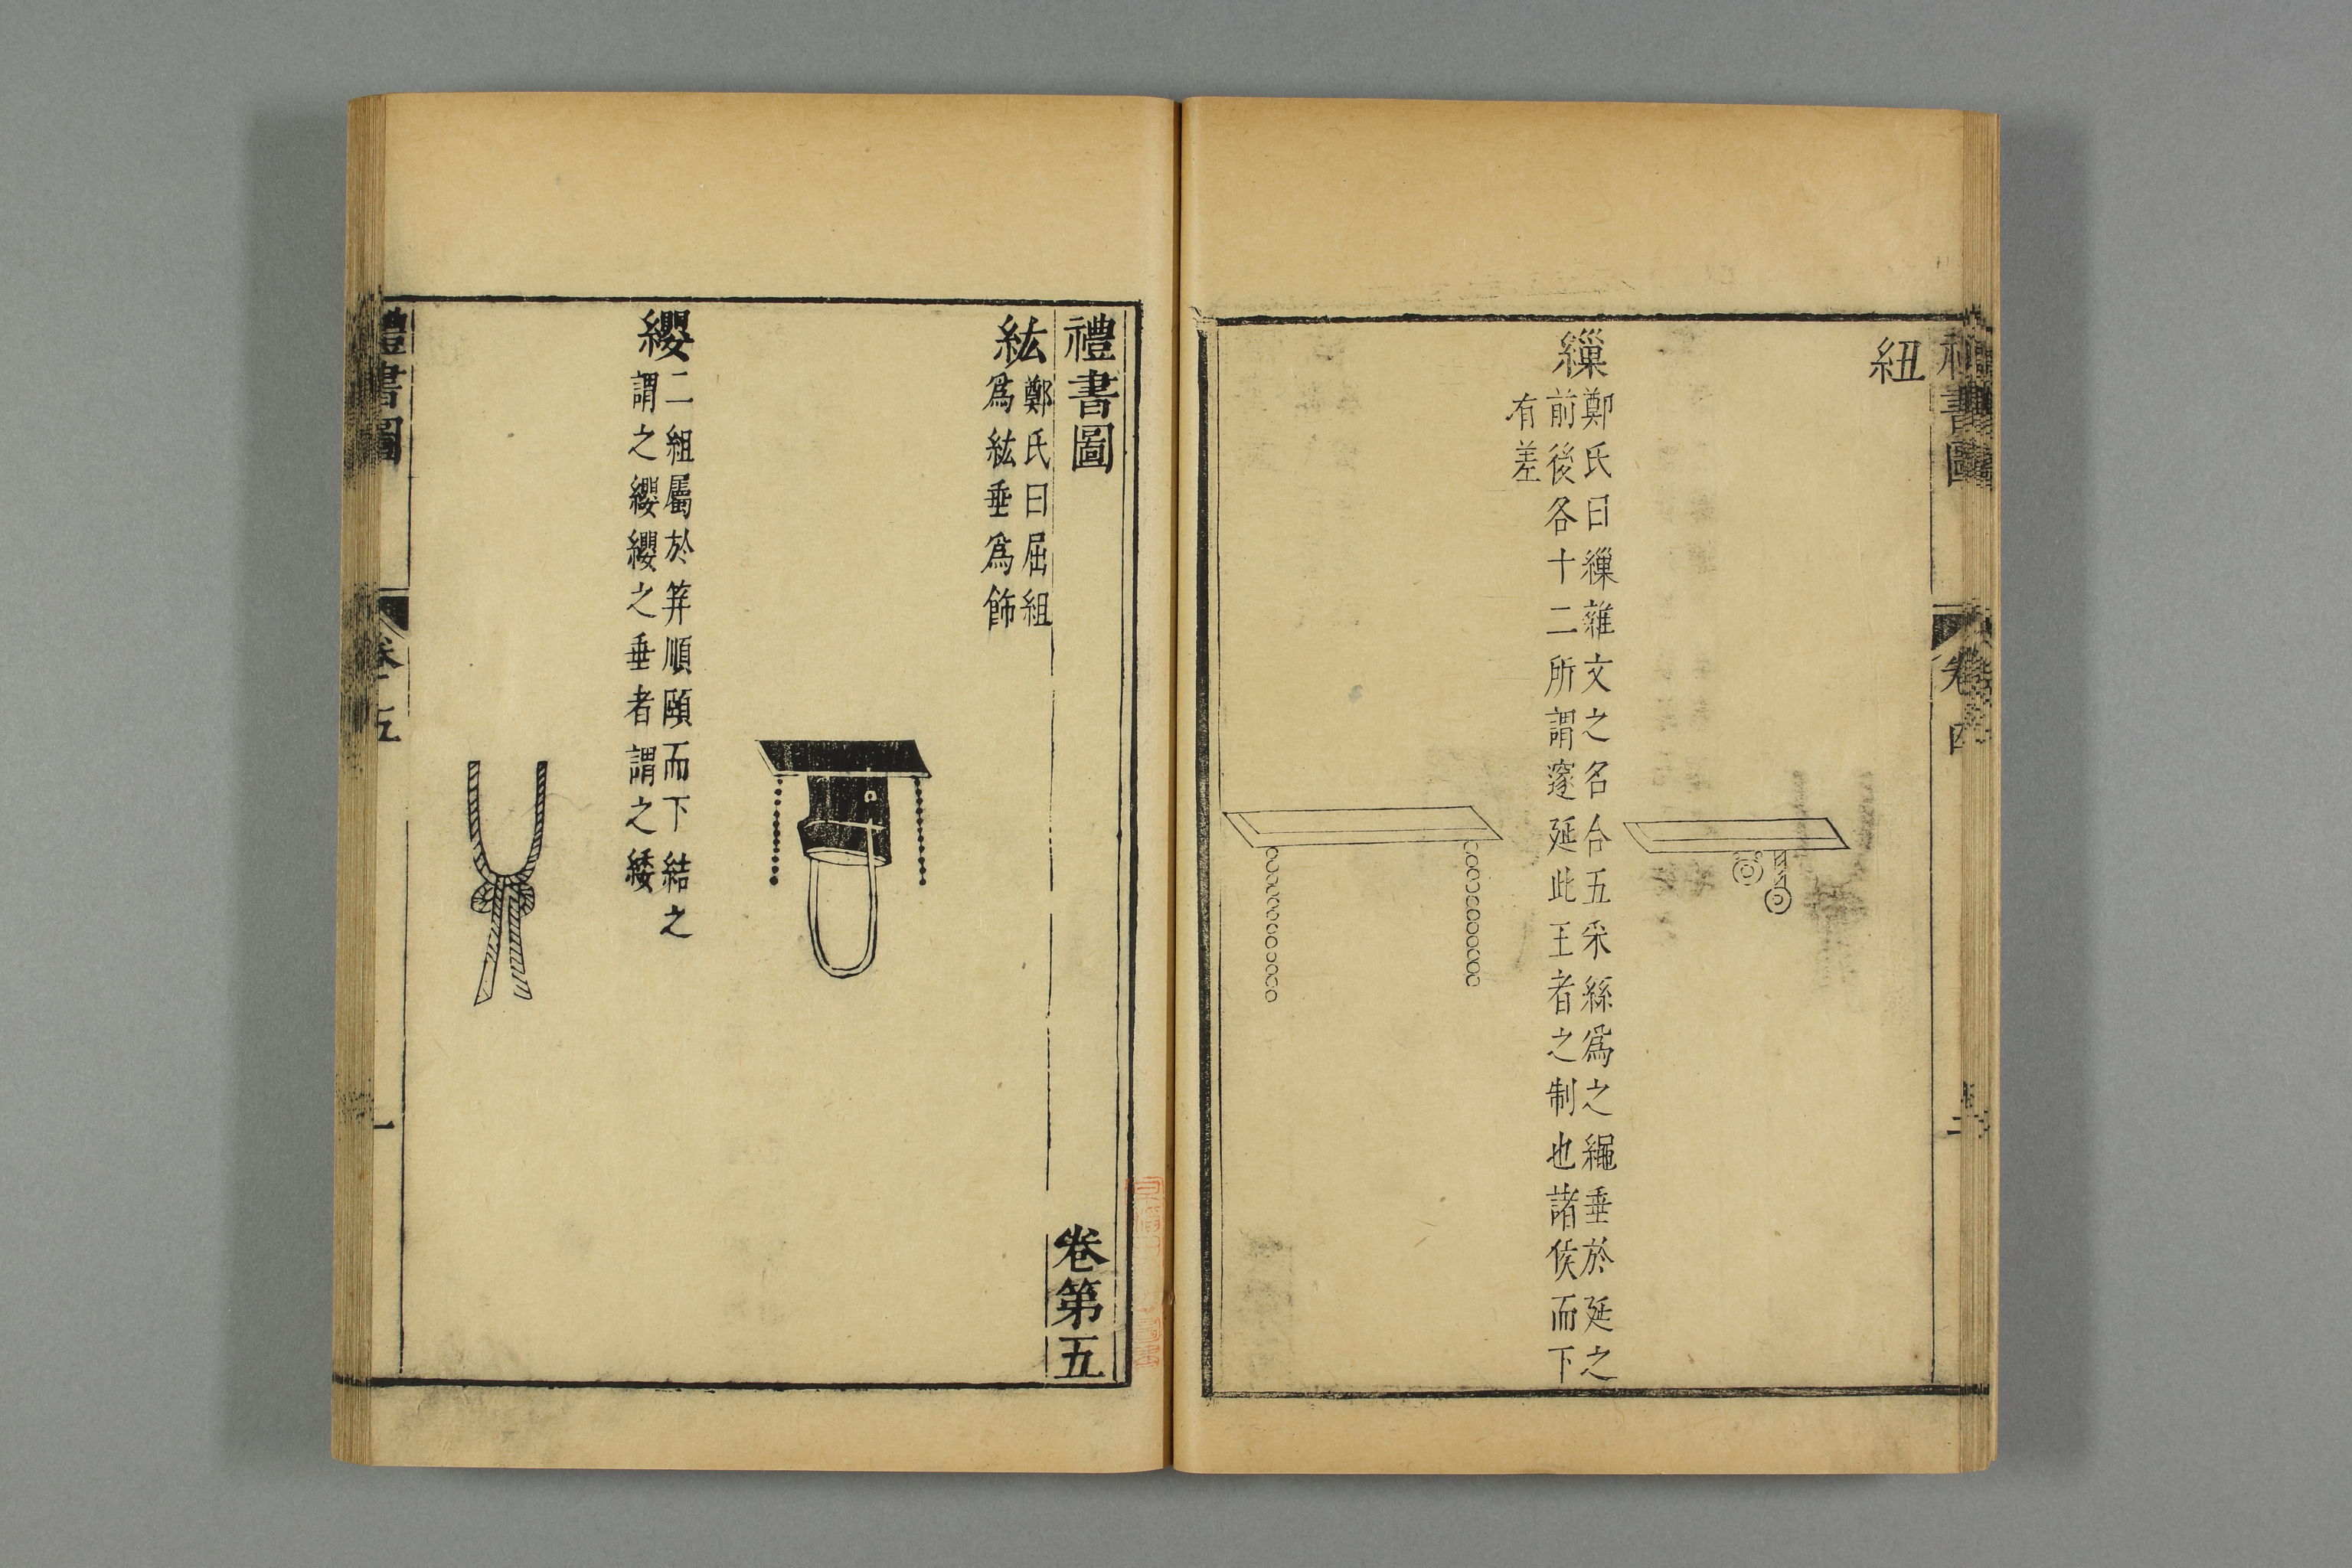 紐
繅
鄭氏曰繅雜文之名合五采絲爲之繩垂於延之
前後各十二所謂邃延此王者之制也諸侯而下
有差
禮書圖
卷第五
紘
鄭氏曰屈組
爲紘垂爲飾
纓
二組屬於筓順頤而下結之
謂之纓纓之垂者謂之緌